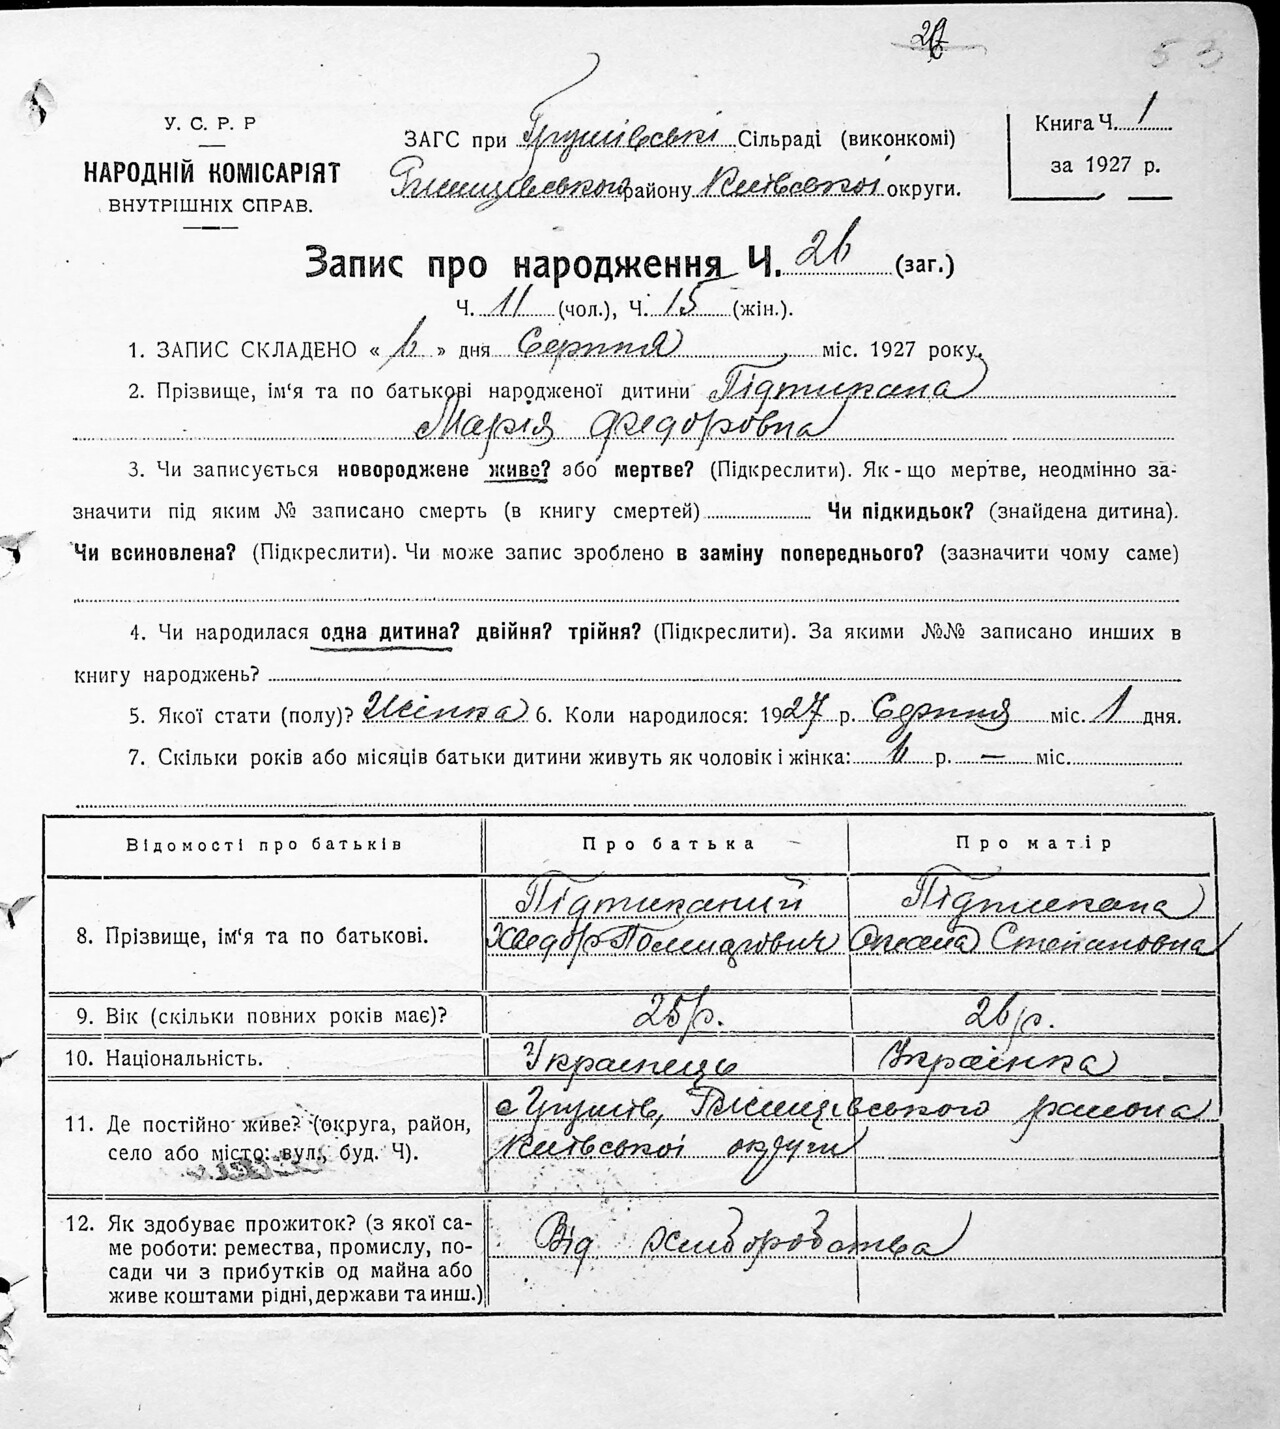 53
У. С. Р. Р
НАРОДНІЙ КОМІСАРІЯТ
ВНУТРІШНІХ СПРАВ.
ЗАГС при Грушівські Сільраді (виконкомі)
Ржищівського району Київської округи.
Книга Ч. 1
за 1927 р.
Запис про народження Ч. 26 (заг.)
Ч. 11 (чол.), Ч. 15 (жін.).
1. ЗАПИС СКЛАДЕНО « 6 » дня Серпня міс. 1927 року.
2. Прізвище, ім‘я та по батькові народженої дитини Підтикана
Марія Федоровна
3. Чи записується новороджене живе? або мертве? (Підкреслити). Як-що мертве, неодмінно за-
значити під яким № записано смерть (в книгу смертей) Чи підкидьок? (знайдена дитина).
Чи всиновлена? (Підкреслити). Чи може запис зроблено в заміну попереднього? (зазначити чому саме)
4. Чи народилася одна дитина? двійня? трійня? (Підкреслити). За якими №№ записано инших в
книгу народжень?
5. Якої стати (полу)? Жінка 6. Коли народилося: 1927 р. Серпня міс. 1 дня.
7. Скільки років або місяців батьки дитини живуть як чоловік і жінка: 6 р. — міс.
Відомості про батьків Про батька Про матір
8. Прізвище, ім‘я та по батькові.
Підтиканий Підтикана
Хведор Оксана Степановна
9. Вік (скільки повних років має)? 25 р. 26 р.
10. Національність. Українець Українка
11. Де постійно живе? (округа, район,
село або місто: вул., буд. Ч).
с Грушів, Ржищівського района
Київської округи
12. Як здобуває прожиток? (з якої са-
ме роботи: ремества, промислу, по-
сади чи з прибутків од майна або
живе коштами рідні, держави та инш.)
Від хліборобства